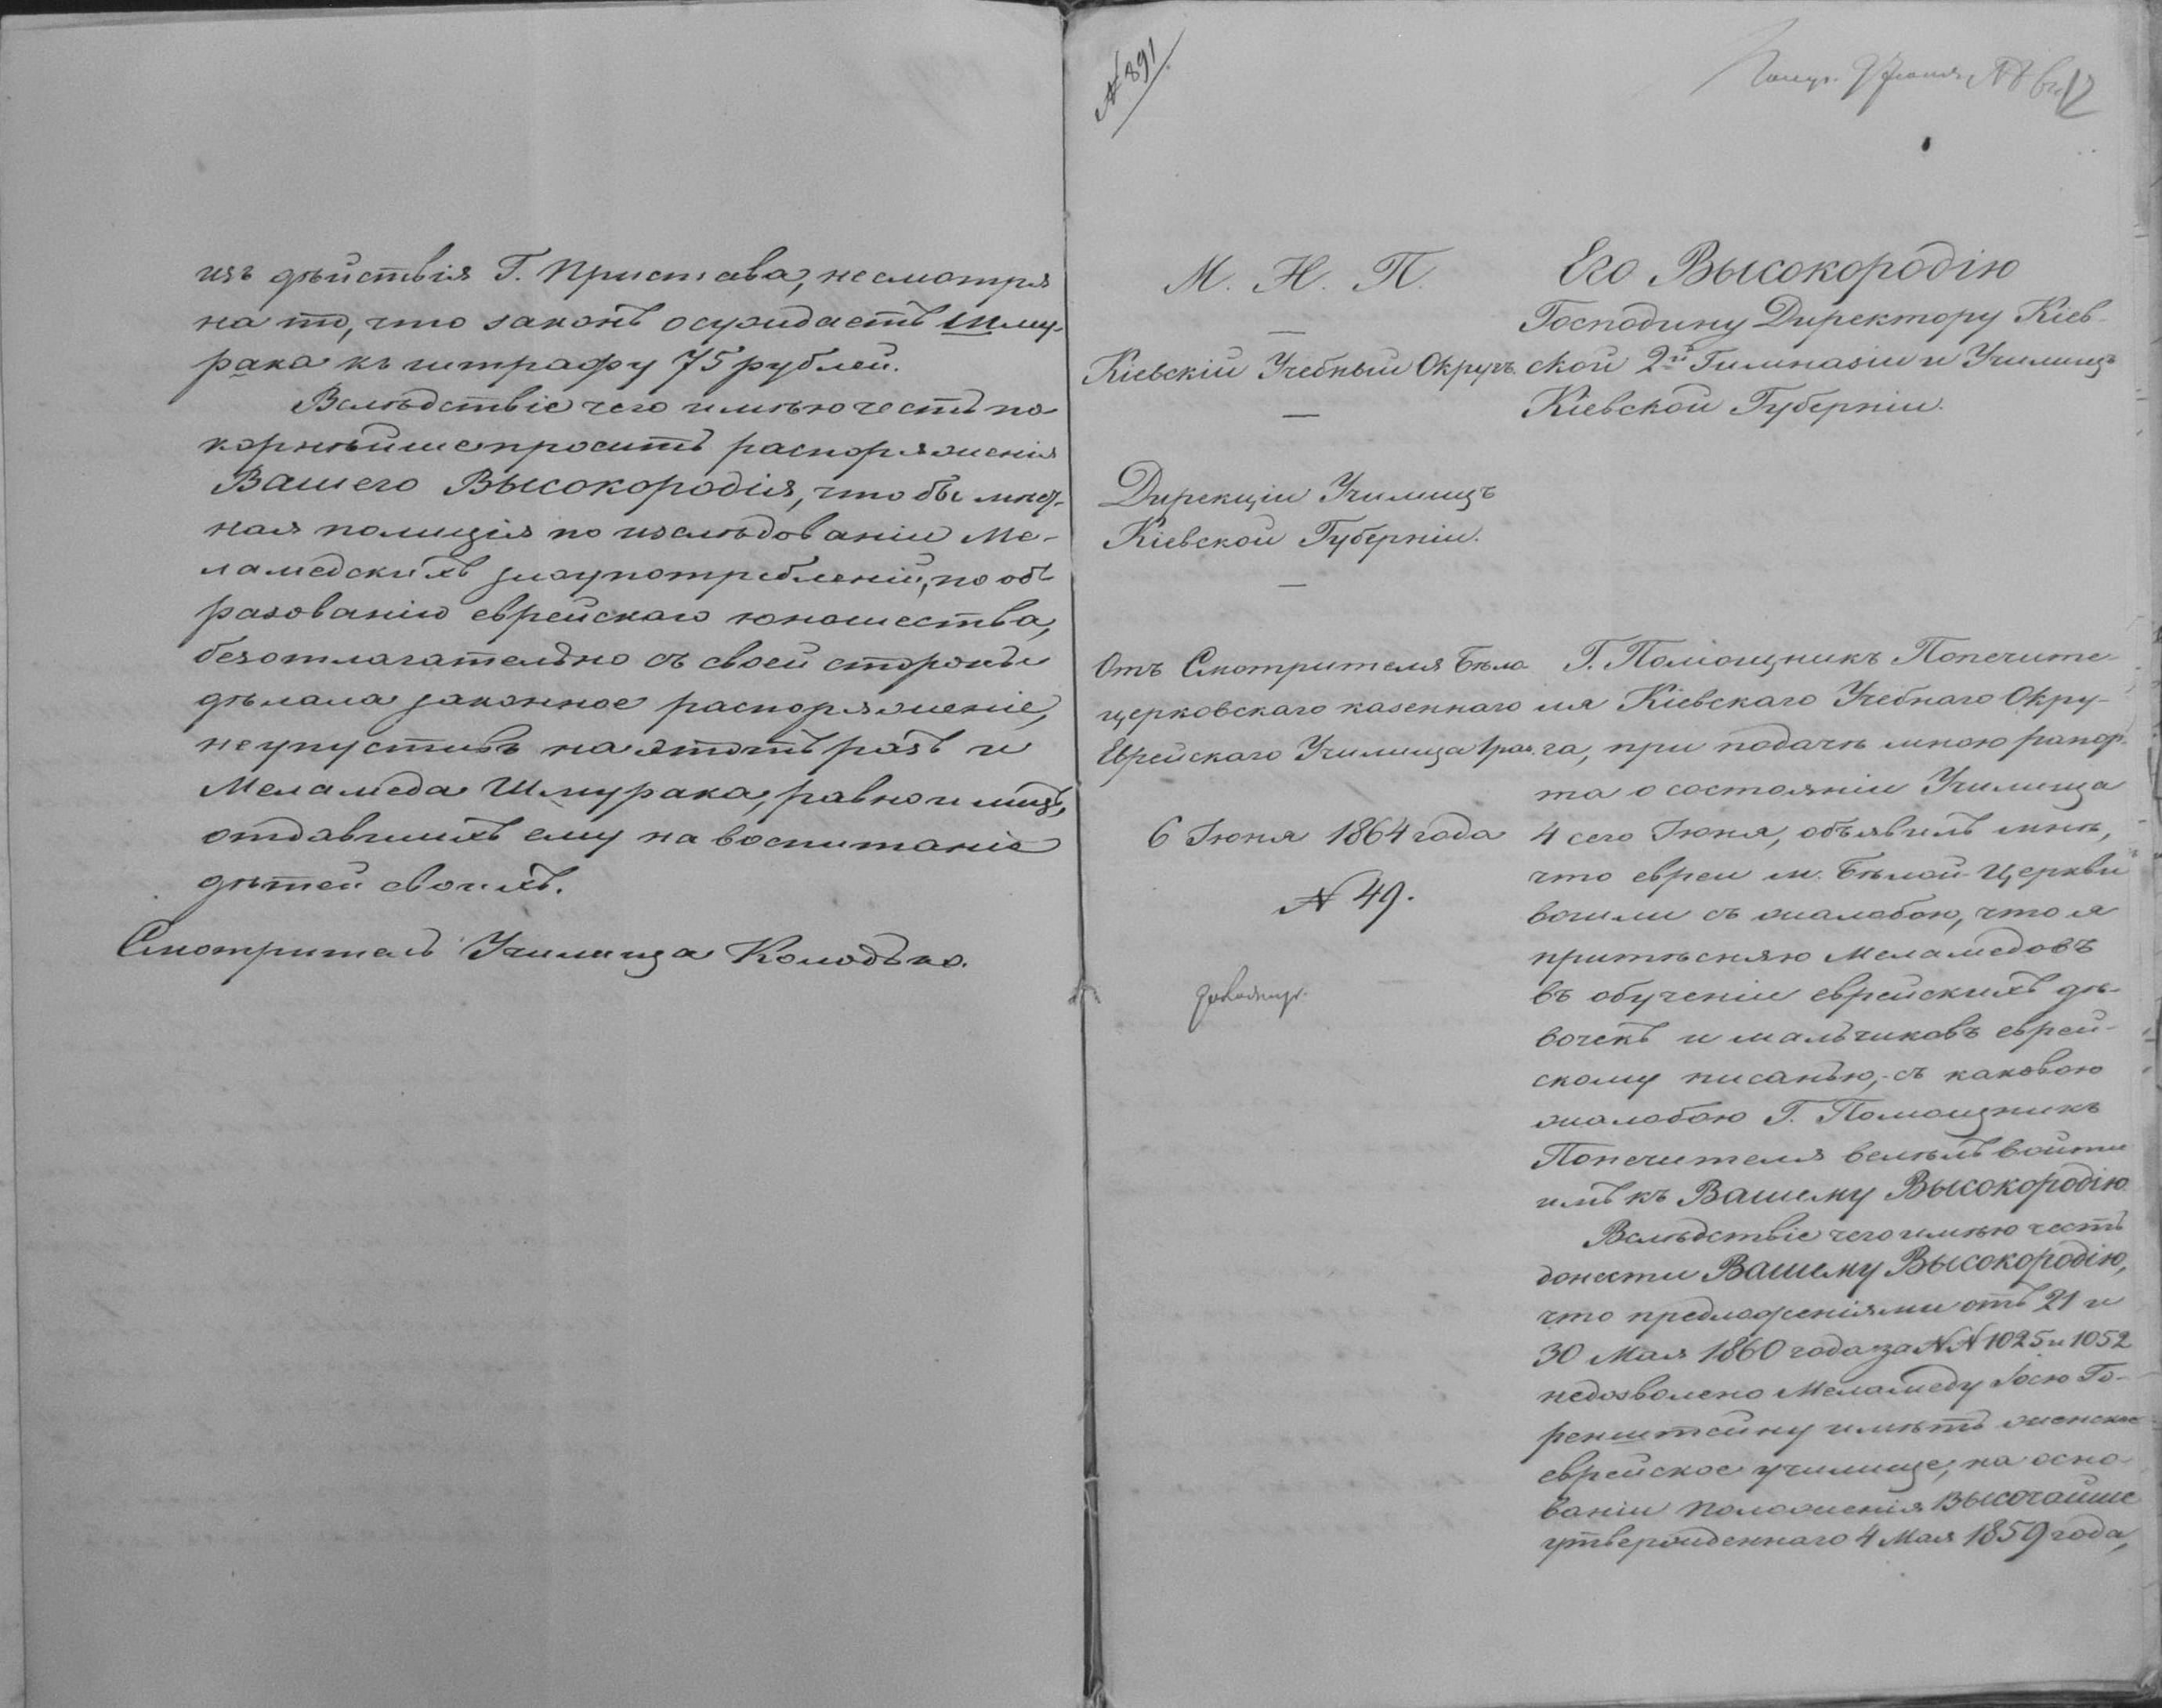 изъ дѣйствія Г. Пристава, несмотря
на то, что законъ осуждаетъ Шму-
рака къ штрафу 75 рублей.
Вслѣдствіе чего имѣю честь по-
корнѣйше просить распоряженія
Вашего Высокородія, чтобы мѣст-
ная полиція по изслѣдованіи Ме-
ламедскихъ злоупотребленій, по об-
разованію еврейскаго юношества,
безотлагательно съ своей стороны
дѣлала законное распоряженіе,
неупустивъ на этотъ разъ и
Меламеда Шмурака, равно и лицъ,
отдавшихъ ему на воспитаніе
дѣтей своихъ.
Смотритель Училища Колодько.
№ 891.
12
М. Н. П.
Кіевскій Учебный Округъ.
Дирекціи Училищъ
Кіевской Губерніи.
Отъ Смотрителя Бѣло
церковскаго казеннаго
Еврейскаго Училища 1 раз.
6 Іюня 1864 года
№ 49.
Его Высокородію
Господину Директору Кіев-
ской 2й Гимназіи и Училищъ
Кіевской Губерніи.
Г. Помощникъ Попечите-
ля Кіевскаго Учебнаго Окру-
га, при подачѣ мною рапор-
та о состояніи Училища
4 сего Іюня, объявилъ мнѣ,
что евреи м. Бѣлой-Церкви
вошли съ жалобою, что я
притѣсняю Меламедовъ
въ обученіи еврейскихъ дѣ-
вочекъ и мальчиковъ еврей-
скому писанью, - съ каковою
жалобою Г. Помощникъ
Попечителя велѣлъ войти
имъ къ Вашему Высокородію.
Вслѣдствіе чего имѣю честь
донести Вашему Высокородію,
что предложеніями отъ 21 и
30 Мая 1860 года за №№ 1025 и 1052
недозволено Меламеду Іосю Го-
ренштейну имѣть женское
еврейское училище, на осно-
ваніи положенія Высочайше
утвержденнаго 4 Мая 1859 года,